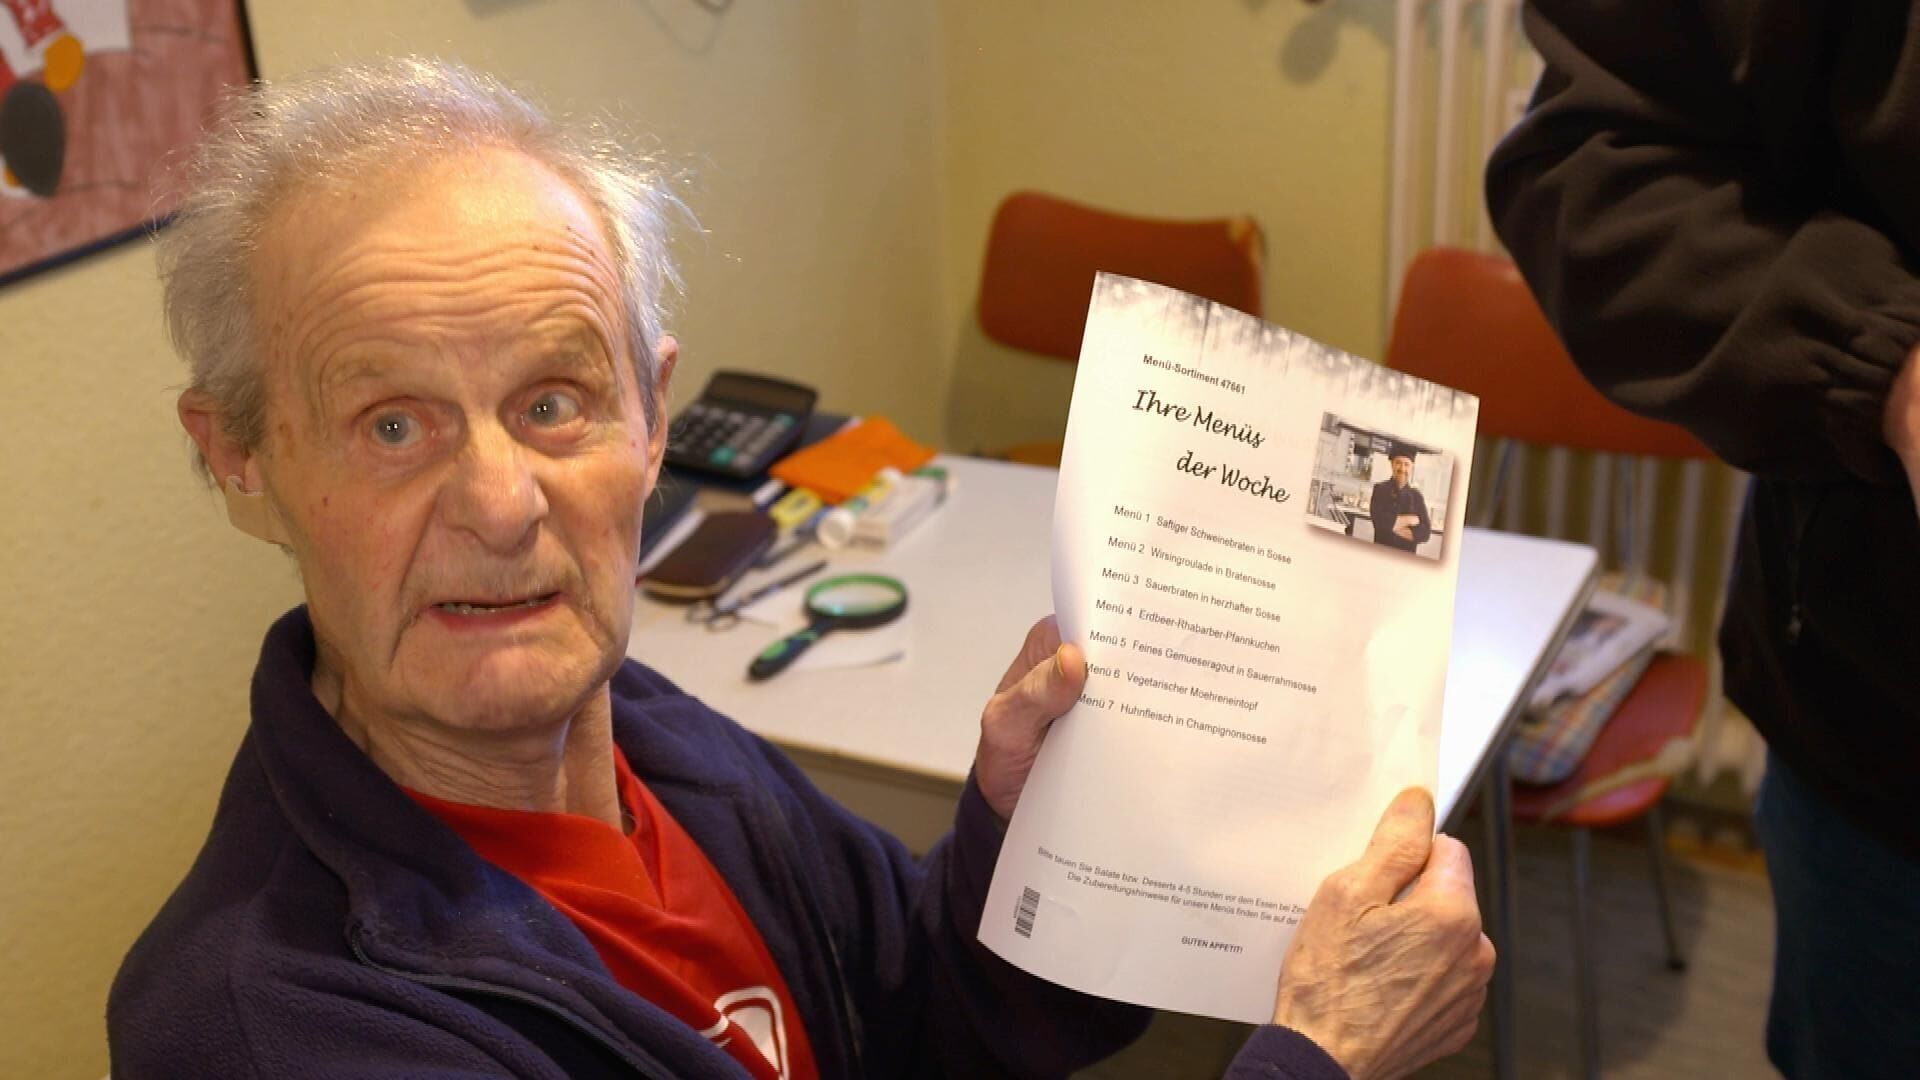 Menü-Sortiment 47661
Ihre Menüs
der Woche
Menü 1 Saftiger Schweinebraten in Sosse
Menü 2 Wirsingroulade in Bratensosse
Menü 3 Sauerbraten in herzhafter Sosse
Menü 4 Erdbeer-Rhabarber-Pfannkuchen
Menü 5 Feines Gemueseragout in Sauerrahmsosse
Menü 6 Vegetarischer Moehreneintopf
Menü 7 Huhnfleisch in Champignonsosse
Bitte tauen Sie Salate bzw. Desserts 4-5 Stunden vor dem Essen bei
Die Zubereitungshinweise für unsere Menüs finden Sie auf der
GUTEN APPETIT!